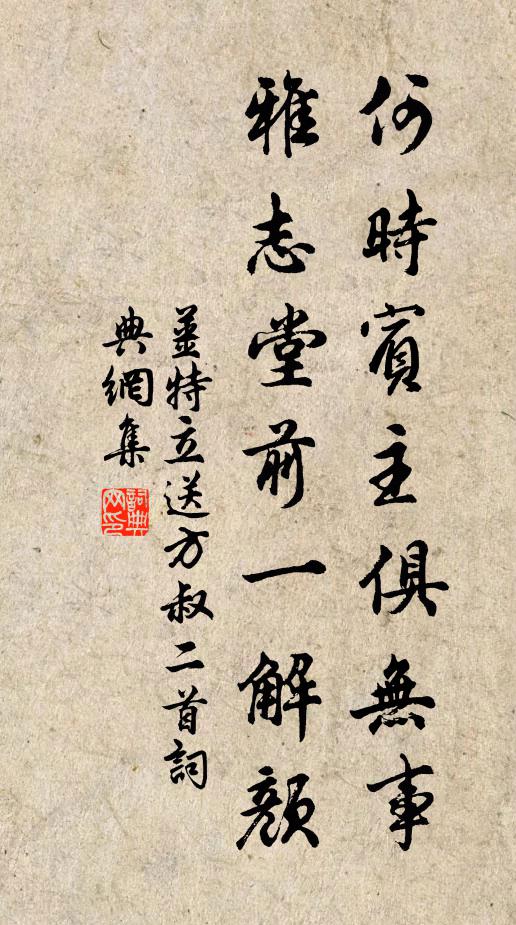 何時賓主俱無事
雅志堂前一解顏
姜特立送方叔二首詞
典網集
詞典網印